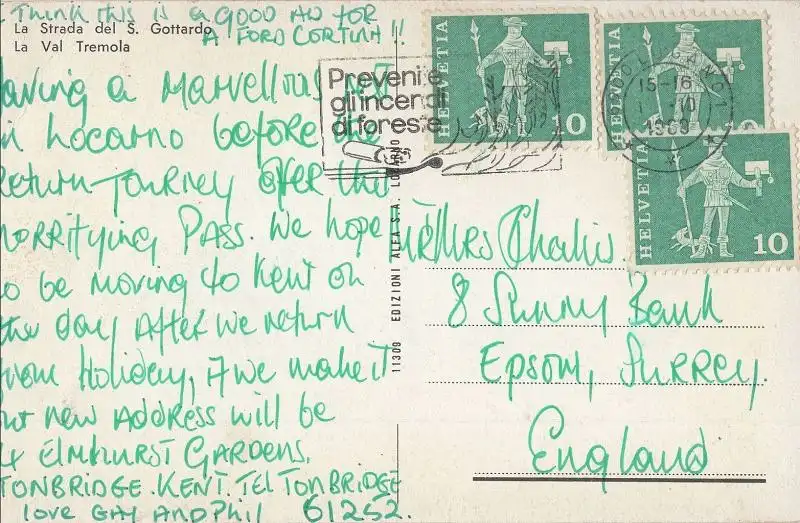 I Think this is a GOOD AD FOR
A FORD CORTINA !!
La Strada del S. Gottardo
La Val Tremola
aving a marvellous
in Locarno before
return journey over the
orrifying PASS. We hope
to be moving to Kent on
the day after we return
from Holiday, if we make it
our new ADDRESS will be
ELMHURST GARDENS,
TONBRIDGE. KENT. Tel TONBRIDGE
61252.
love GAY AND Phil
11309 EDIZIONI ALFA S.A. LOCARNO
Prevenite
gli incendi
di foreste
HELVETIA
10
HELVETIA
15-16
1969
HELVETIA
10
Mr & Mrs
8 Sunny Bank
Epsom, Surrey.
England